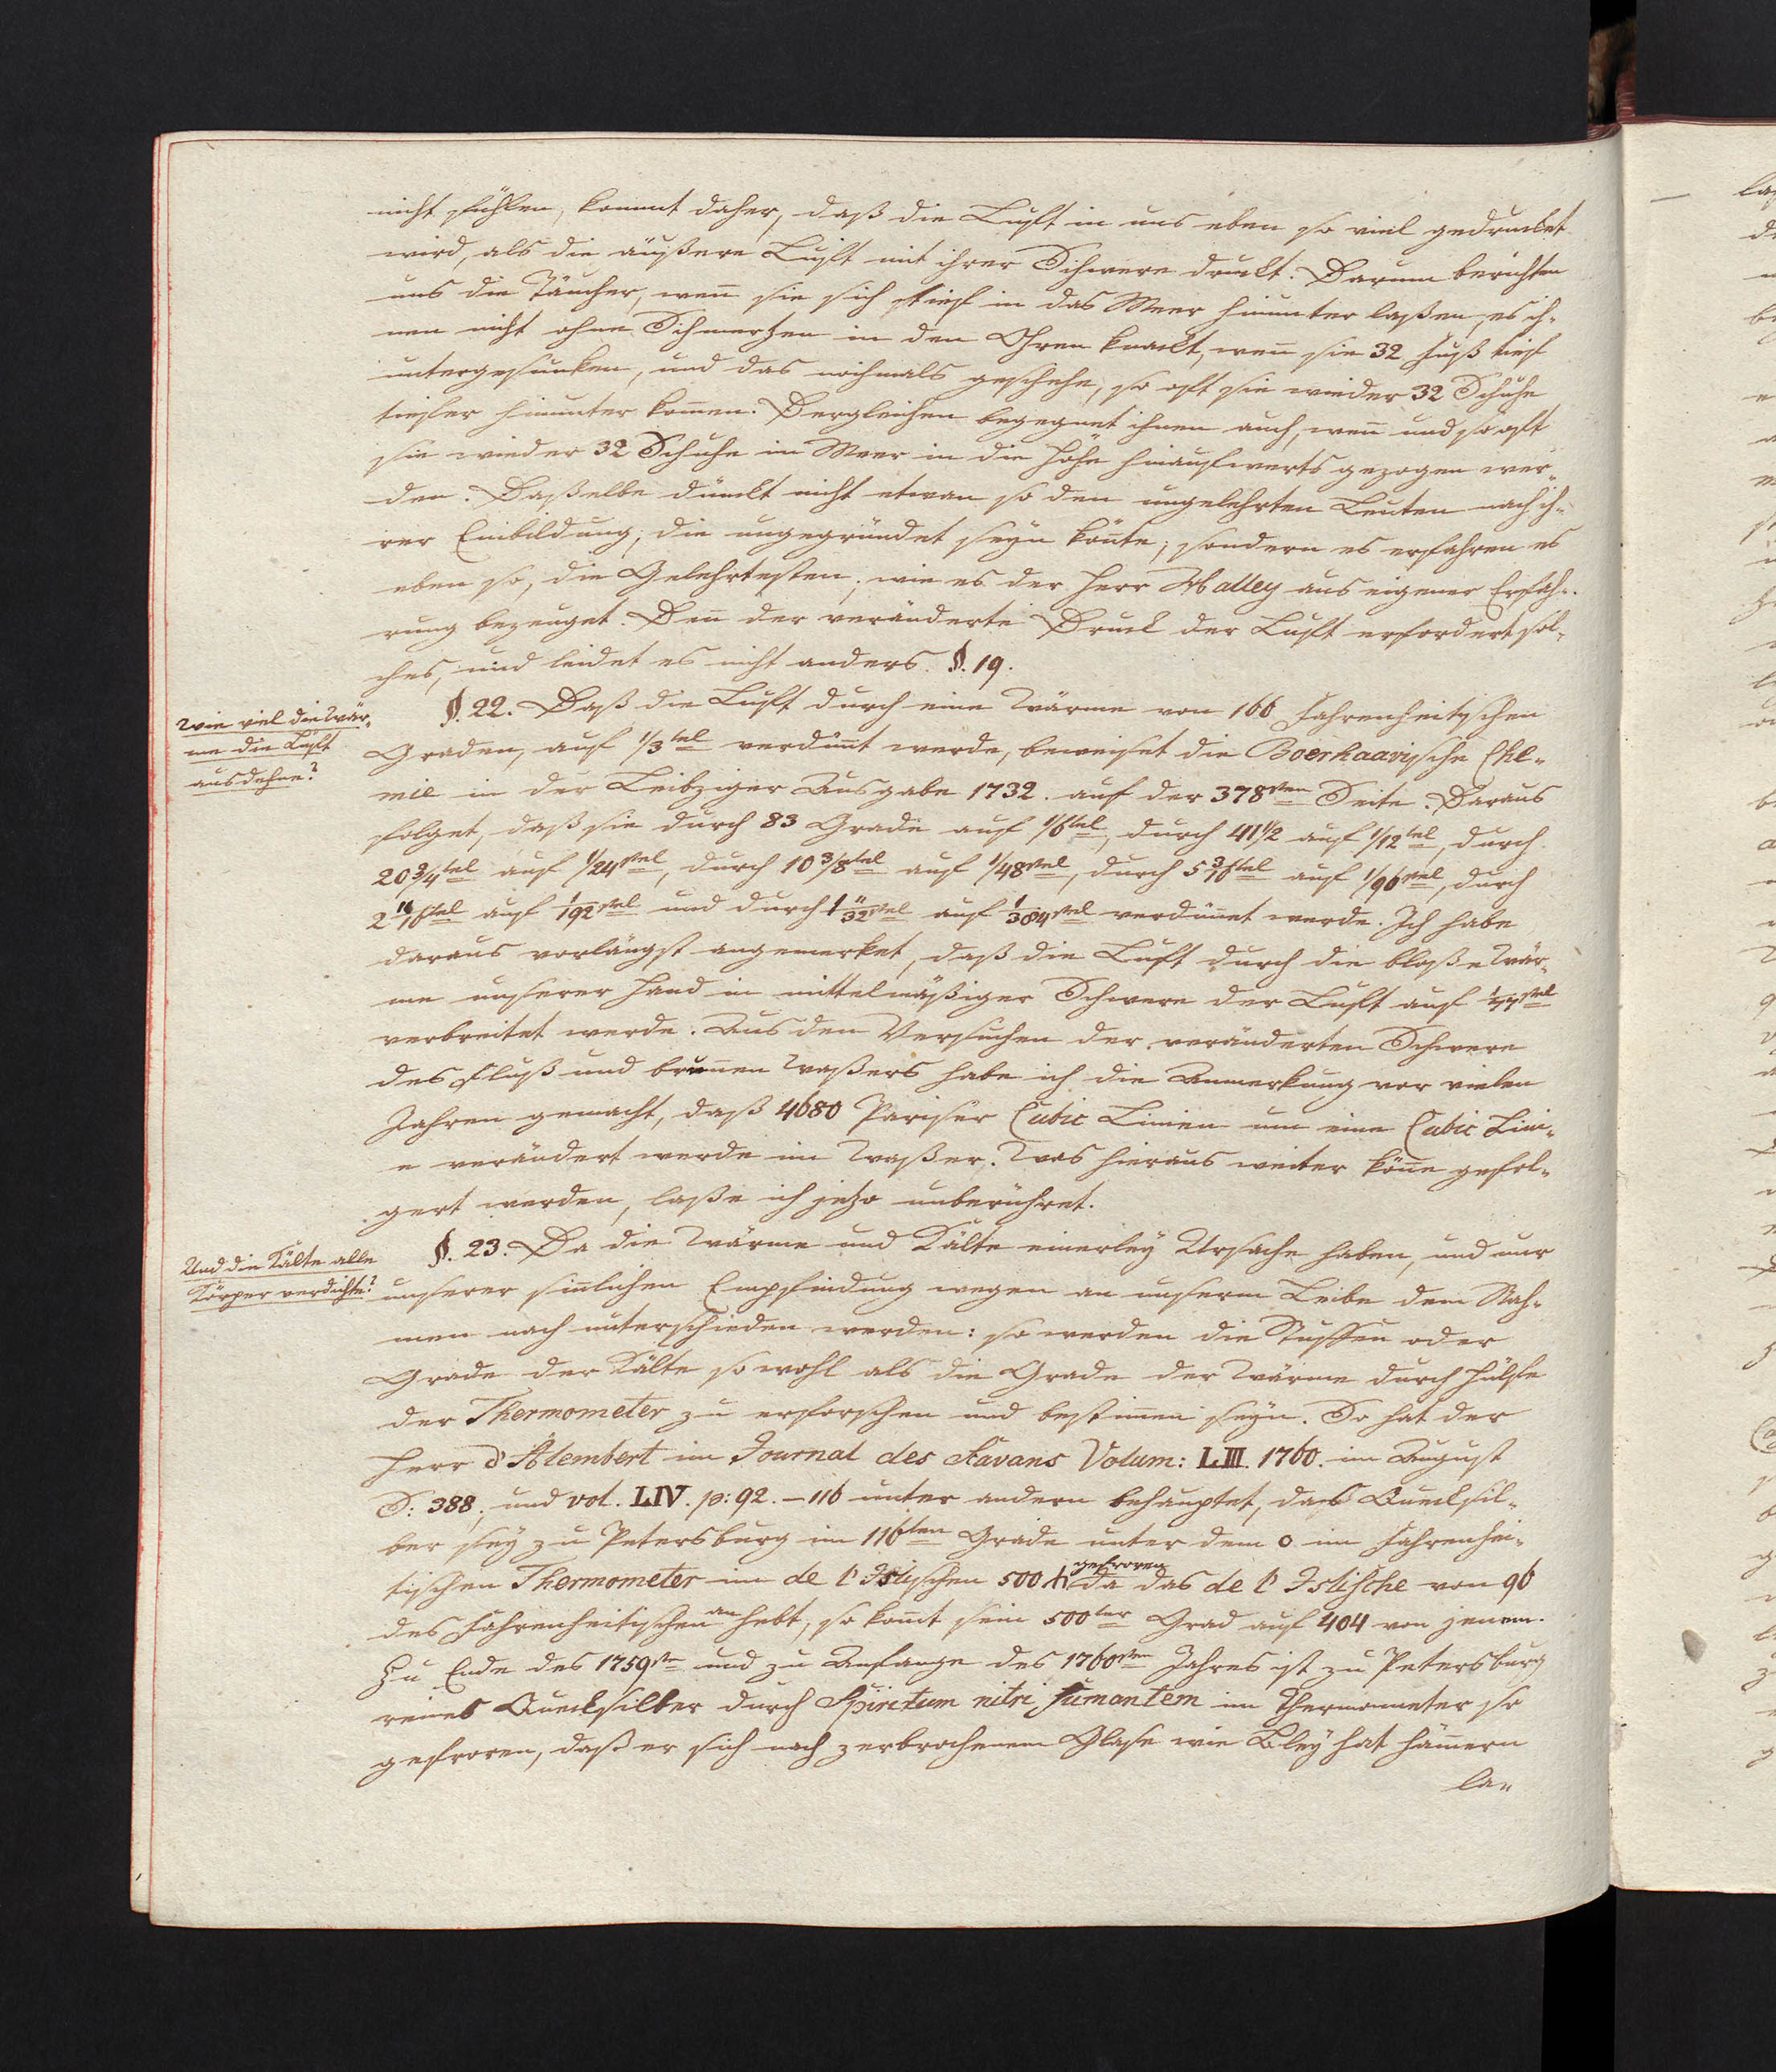 nicht fühlen, kommt daher, daß die Luft in uns eben so viel gedrucket
wird, als die äußere Luft mit ihrer Schwere druckt. Darum berichten
uns die Täucher, weñ sie sich tief in das Meer hinunter laßen, es ih-
nen nicht ohne Schmertzen in den Ohren knackt, weñ sie 32 Fuß tief
untergesunken, und das nochmals geschehe, so oft sie wieder 32 Schuhe
tiefer hinunter kom̃en. Dergleichen begegnet ihnen auch, weñ und so oft
sie wieder 32 Schuhe im Meer in die Höhe hinaufwerts gezogen wer-
den. Daßelbe dünckt nicht etwan so den ungelehrten Leuten nach ih-
rer Einbildung, die ungegründet seyn köñte; sondern es erfahren es
eben so, die Gelehrtesten, wie es der Herr Halley aus eigener Erfah-
rung bezeuget. Deñ der veränderte Druck der Luft erfordert sol-
ches, und leidet es nicht anders. §. 19.
Wie viel die Wär-
me die Luft
ausdehne?
§. 22. Daß die Luft durch eine Wärme von 166 Fahrenheitischen
Graden, auf 1/3 tel verdüñt werde, beweiset die Boerhaavische Che-
mie in der Leibziger Ausgabe 1732. auf der 378sten Seite. Daraus
folget, daß sie durch 83 Grade auf 1/6tel, durch 41 1/2 auf 1/12tel, durch
20 3/4tel auf 1/24stel, durch 10 3/8tel auf 1/48stel, durch 5 3/16tel auf 1/96stel, durch
2 /16tel auf 1/192stel und durch 1 /32stel auf 1/384stel verdüñet werde. Ich habe
daraus vorlängst angemerket, daß die Luft durch die bloße Wär-
me unserer Hand in mittelmäßiger Schwere der Luft auf 1/77stel
verbreitet werde. Aus den Versuchen der veränderten Schwere
des Fluß und bruñen Waßers habe ich die Anmerkung vor vielen
Jahren gemacht, daß 4680 Pariser Cubic Linien um eine Cubic Lini-
e verändert werde im Waßer. Was hieraus weiter köñe gefol-
gert werden, laße ich jetzo unberühret.
Und die Kälte alle
Körper verdichte?
§. 23. Da die Wärme und Kälte einerley Ursache haben, und nur
unserer siñlichen Empfindung wegen an unserm Leibe dem Nah-
men nach unterschieden werden: so werden die Stuffen oder
Grade der Kälte so wohl als die Grade der Wärme durch Hülfe
der Thermometer zu erforschen und bestim̃en seyn. So hat der
Herr d'Alembert im Journal des Savans Volum: LIII. 1760. im August
S: 388. und vol. LIV. p: 92. – 116 unter andern behauptet, das Quecksil-
ber sey zu Petersburg im 116ten Grade unter dem 0 im Fahrenhei-
tischen Thermometer im de l'Islischen 500 gefroren da das de l'Islische von 96
des Fahrenheitischen an hebt, so kom̃t sein 500ter Grad auf 404 von jenem.
Zu Ende des 1759sten und zu Anfange des 1760sten Jahres ist zu Petersburg
reines Quecksilber durch Spiritum nitri fumantem im Thermometer so
gefroren, daß er sich nach zerbrochenem Glase wie Bley hat häm̃ern
la-